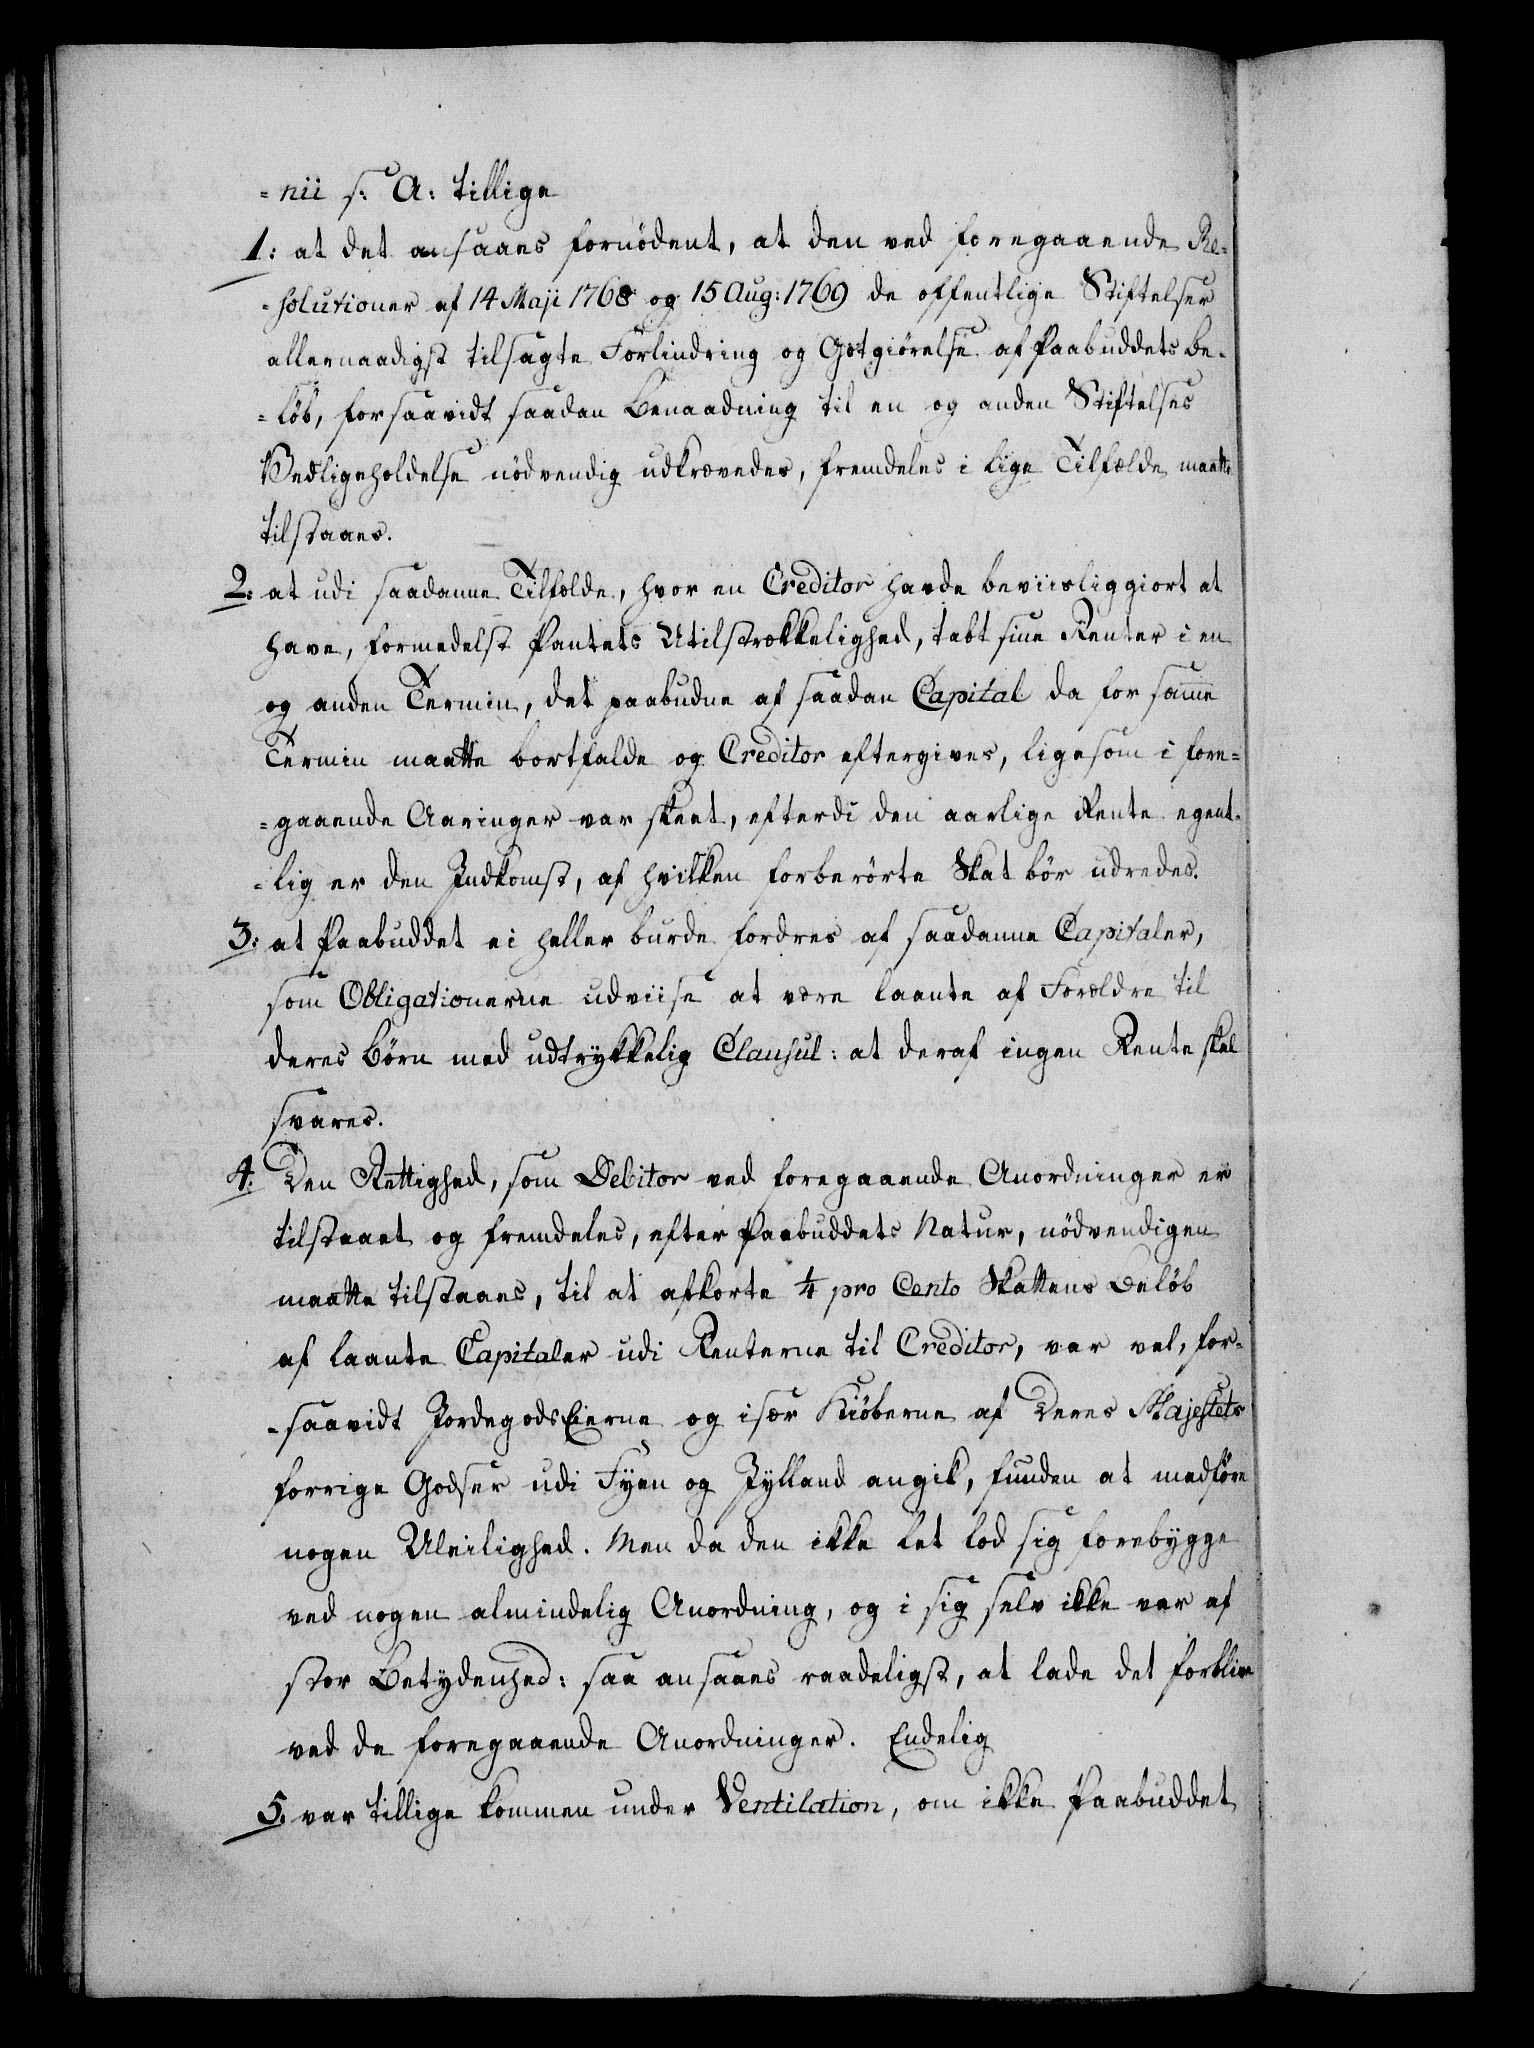 =nii s: A: tillige
1: at det ansaaes fornödent, at den ved foregaaende Re-
-solutioner af 14 Maji 1768 og 15 Aug: 1769 de offentlige Stiftelser
allernaadigst tilsagte Forlindring og Gotgiörelse af Paabuddets be-
-löb, forsaavidt saadan Benaadning til en og anden Stiftelses
Vedligeholdelse nödvendig udkrævedes, fremdeles i lige Tilfælde maatte
tilstaaes.
2: at udi saadanne Tilfælde, hvor en Creditor havde beviisliggiort at
have, formedelst Pantets Utilstrækkelighed, tabt sine Renter i en
og anden Termin, det paabudne af saadan Capital da for samme
Termin maatte bortfalde og Creditor eftergives, ligesom i fore-
-gaaende Aaringer var skeet, efterdi den aarlige Rente egent-
-lig er den Indkomst, af hvilken forberörte Skat bör udredes.
3: at Paabuddet ei heller burde fordres af saadanne Capitaler,
som Obligationerne udviise at være laante af Forældre til
deres Börn med udtrykkelig Clausul: at deraf ingen Rente skal
svares.
4: Den Rettighed, som Debitor ved foregaaende Anordninger er
tilstaaet og fremdeles, efter Paabuddets Natur, nödvendigen
maatte tilstaaes, til at afkorte 1/4 pro Cento Skattens Belöb
af laante Capitaler udi Renterne til Creditor, var vel, for-
-saavidt JordegodsEierne og især Kiöberne af Deres Majestets
forrige Godser udi Fyen og Jylland angik, funden at medföre
nogen Uleilighed. Men da den ikke let lod sig forebygge
ved nogen almindelig Anordning, og i sig selv ikke var af
stor Betydenhed: saa ansaaes raadeligst, at lade det forblive
ved de foregaaende Anordninger. Endelig
5. var tillige kommen under Ventilation, om ikke Paabuddet